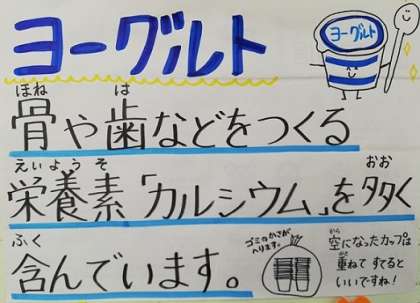 ヨーグルト
ヨーグルト
ほね は
骨や歯などをつくる
えいようそ おお
栄養素「カルシウム」を多く
ふく
含んでいます。
ゴミのかさが
へります。
から
空になったカップは
かさ
重ねて すてると
いいですね!